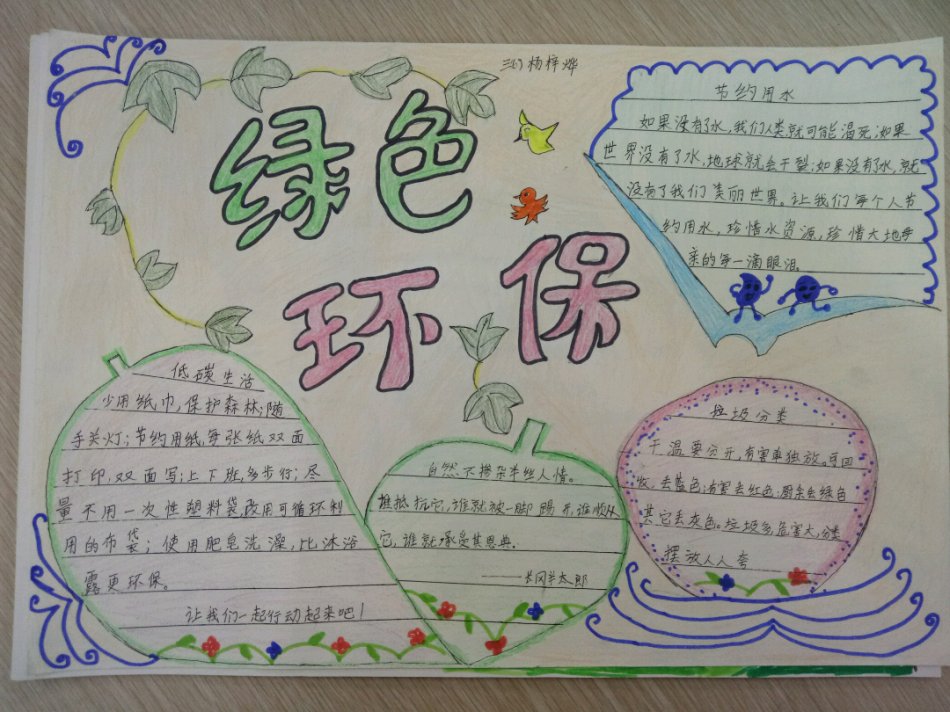 三(1) 杨梓烨
绿色
环保
节约用水
如果没有了水,我们人类就可能渴死;如果
世界没有了水,地球就会干裂;如果没有了水,就
没有了我们美丽世界。让我们每个人节
约用水,珍惜水资源,珍惜大地母
亲的每一滴眼泪。
低碳生活
少用纸巾,保护森林;随
手关灯;节约用纸,每张纸双面
打印,双面写;上下班,多步行;尽
量不用一次性塑料袋,改用可循环利
用的布袋;使用肥皂洗澡,比沐浴
露更环保。
让我们一起行动起来吧!
自然不掺杂半丝人情。
抵抗它,谁就被一脚踢开,谁顺从
它,谁就承受其恩典。
——长冈半太郎
垃圾分类
干湿要分开,有害单独放。可回
收,去蓝色;有害去红色;厨余去绿色
其它丢灰色。垃圾多危害大,分类
摆放人人夸